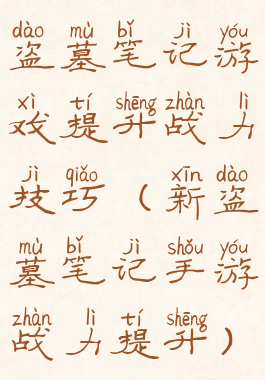 dào mù bǐ jì yóu
盗墓笔记游
xì tí shēng zhàn lì
戏提升战力
jì qiǎo xīn dào
技巧（新盗
mù bǐ jì shǒu yóu
墓笔记手游
zhàn lì tí shēng
战力提升）